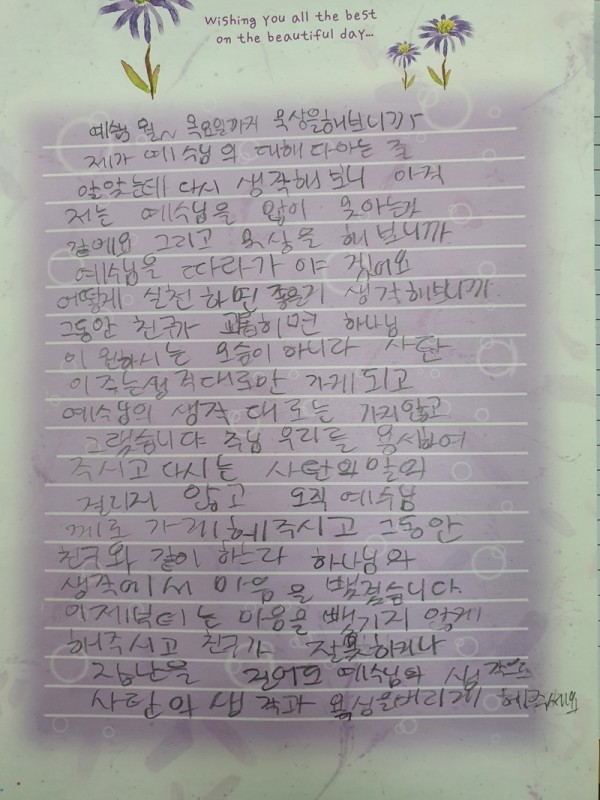 Wishing you all the best
on the beautiful day...
예수님 월~ 목요일까지 묵상을해보니까
제가 예수님의 대해 다아는 줄
알앗는데 다시 생각해 보니 아직
저는 예수님을 많이 못아는것
같에요 그리고 묵상을 해 보니까
예수님을 따라가 야 겠어요
어떻게 실천 하면 좋은지 생각해보니까
그동안 친구가 괴롭히면 하나님
이 원하시는 모습이 아니라 사탄
이 주는생각대로만 가게되고
예수님의 생각 대로는 가지않고
그랬습니다 주님 우리를 용서하여
주시고 다시는 사탄의말의
걸리지 않고 오직 예수님
께로 가게헤주시고 그동안
친구와 같이 하느라 하나님과
생각에서 마음을 뺐겼습니다.
이제부터는 마음을 빼기지 않게
해주시고 친구가 잘못하거나
장난을 걸어도 예수님의 생각으로
사탄의 생각과 욕심을버리게 헤주세요